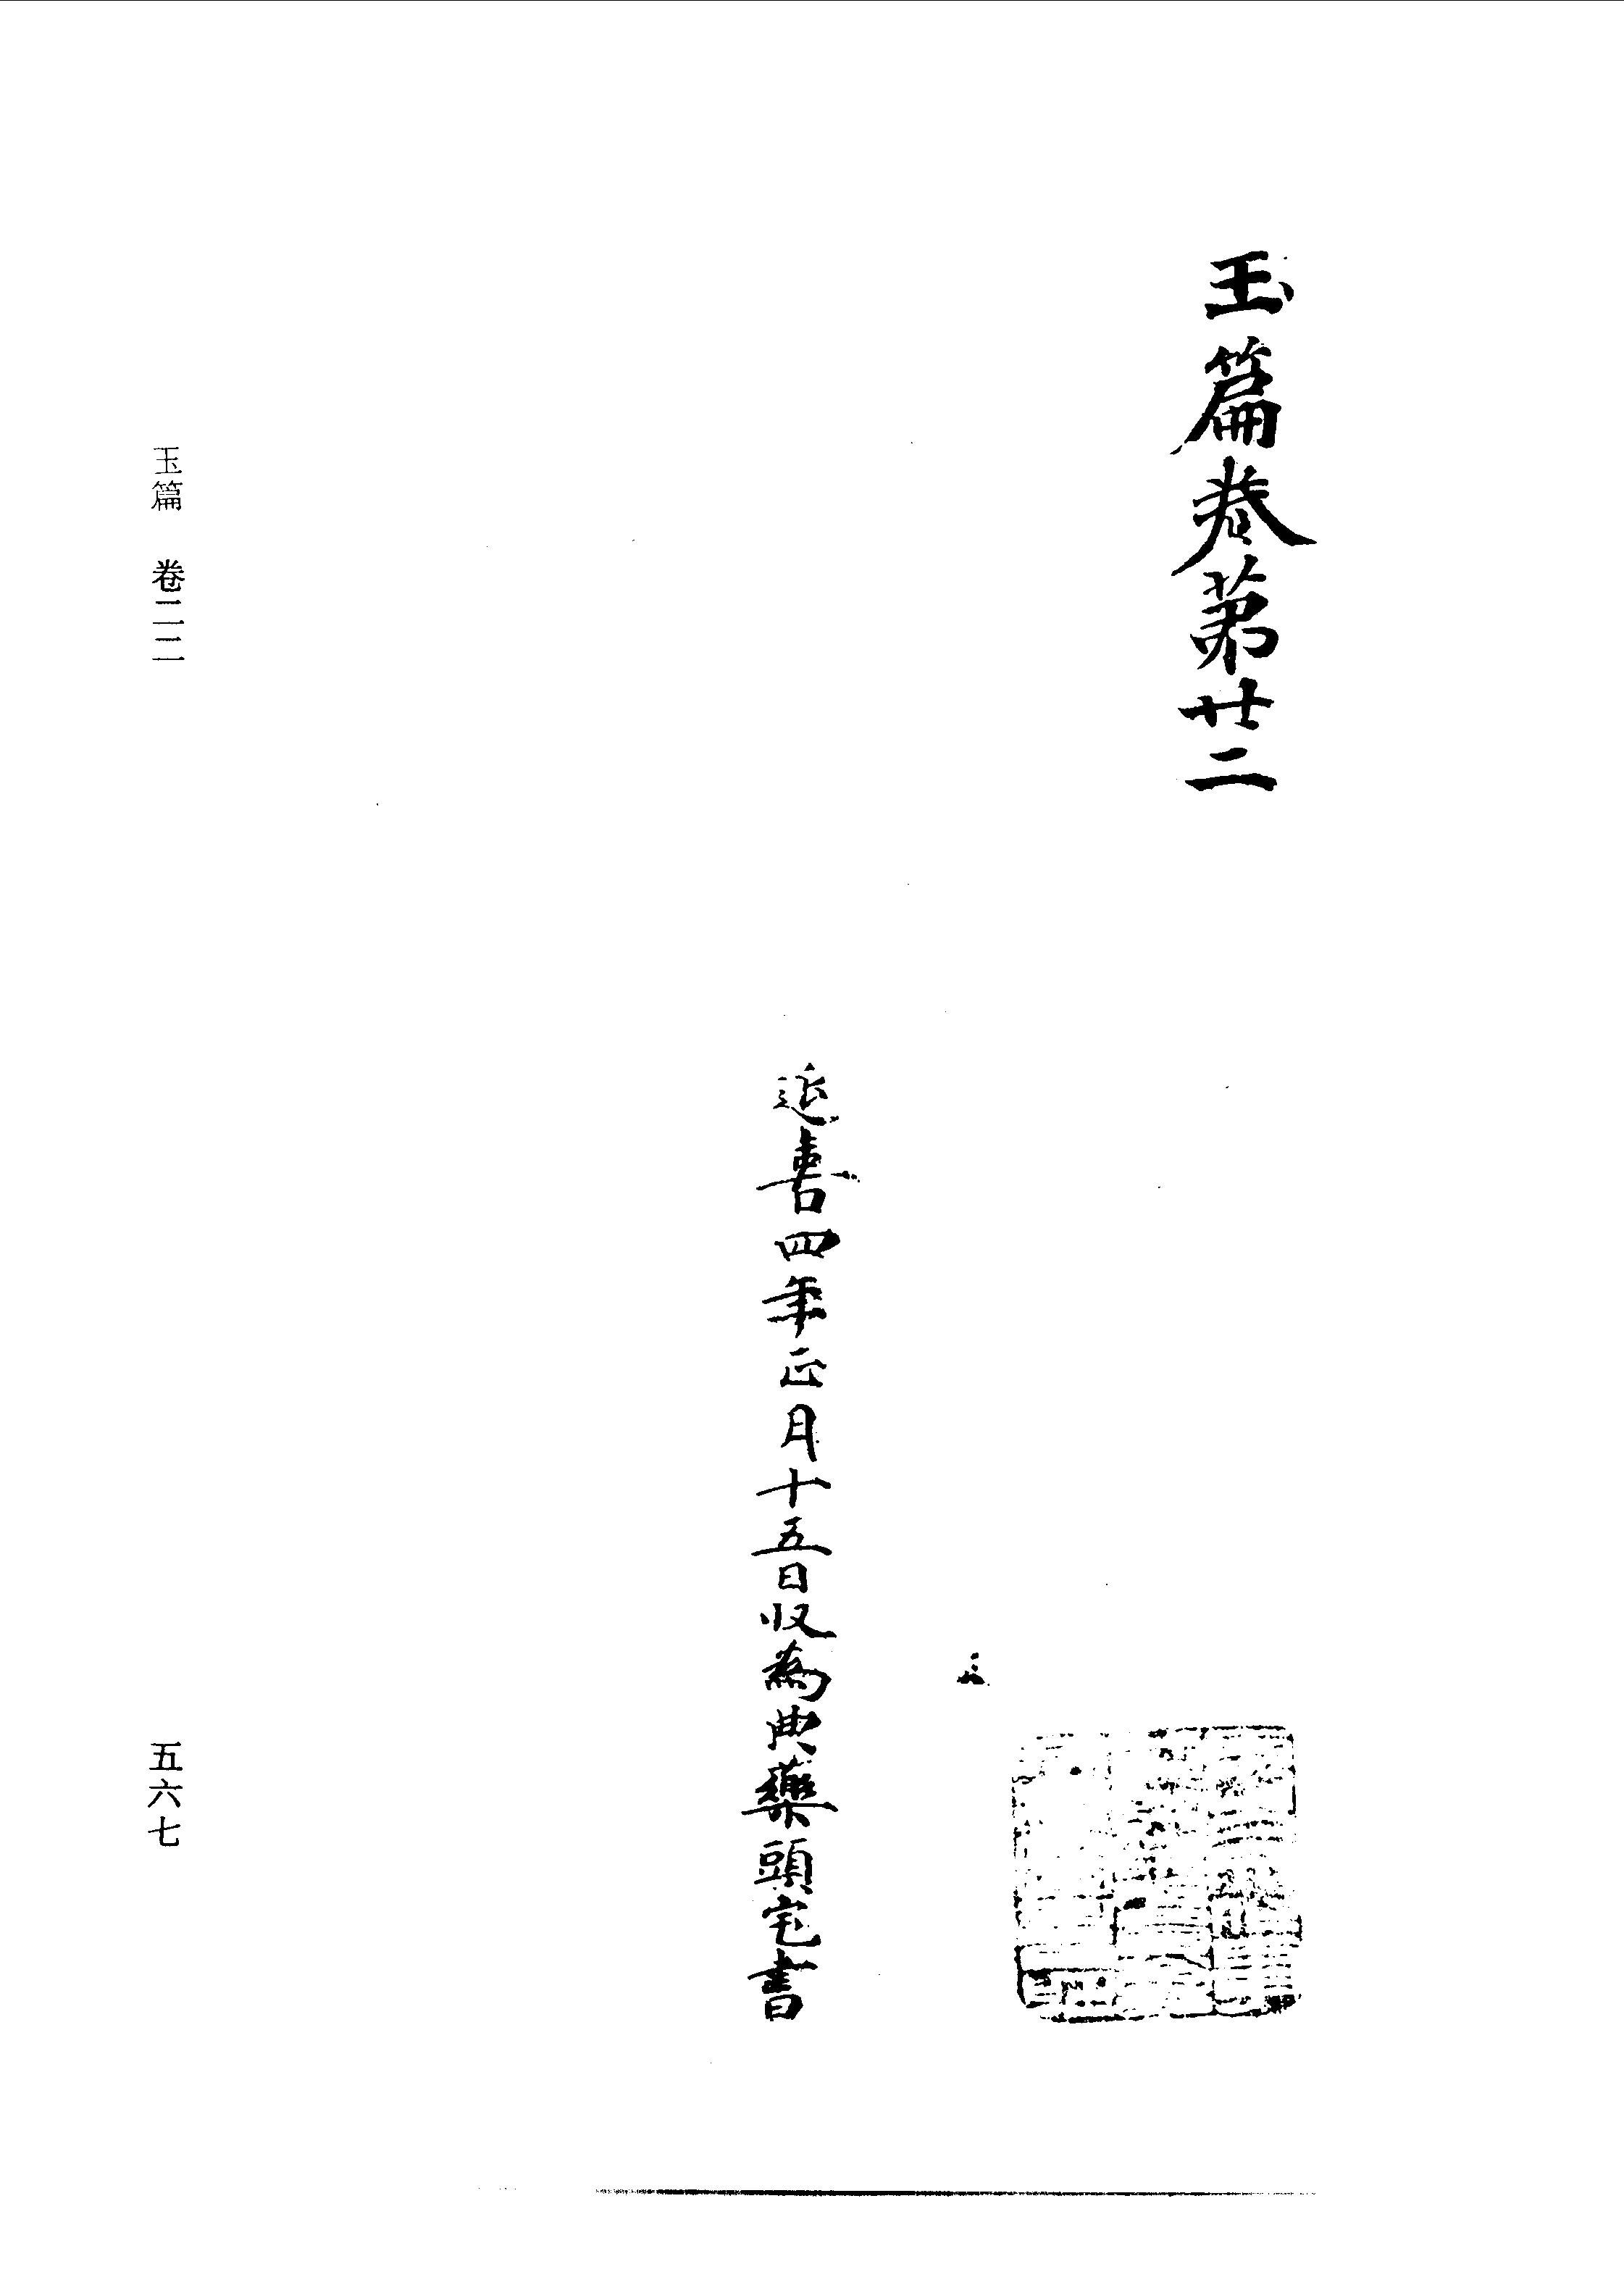 玉篇卷第廿二
延喜四年正月十五日收為典藥頭宅書
玉篇 卷二二
五六七